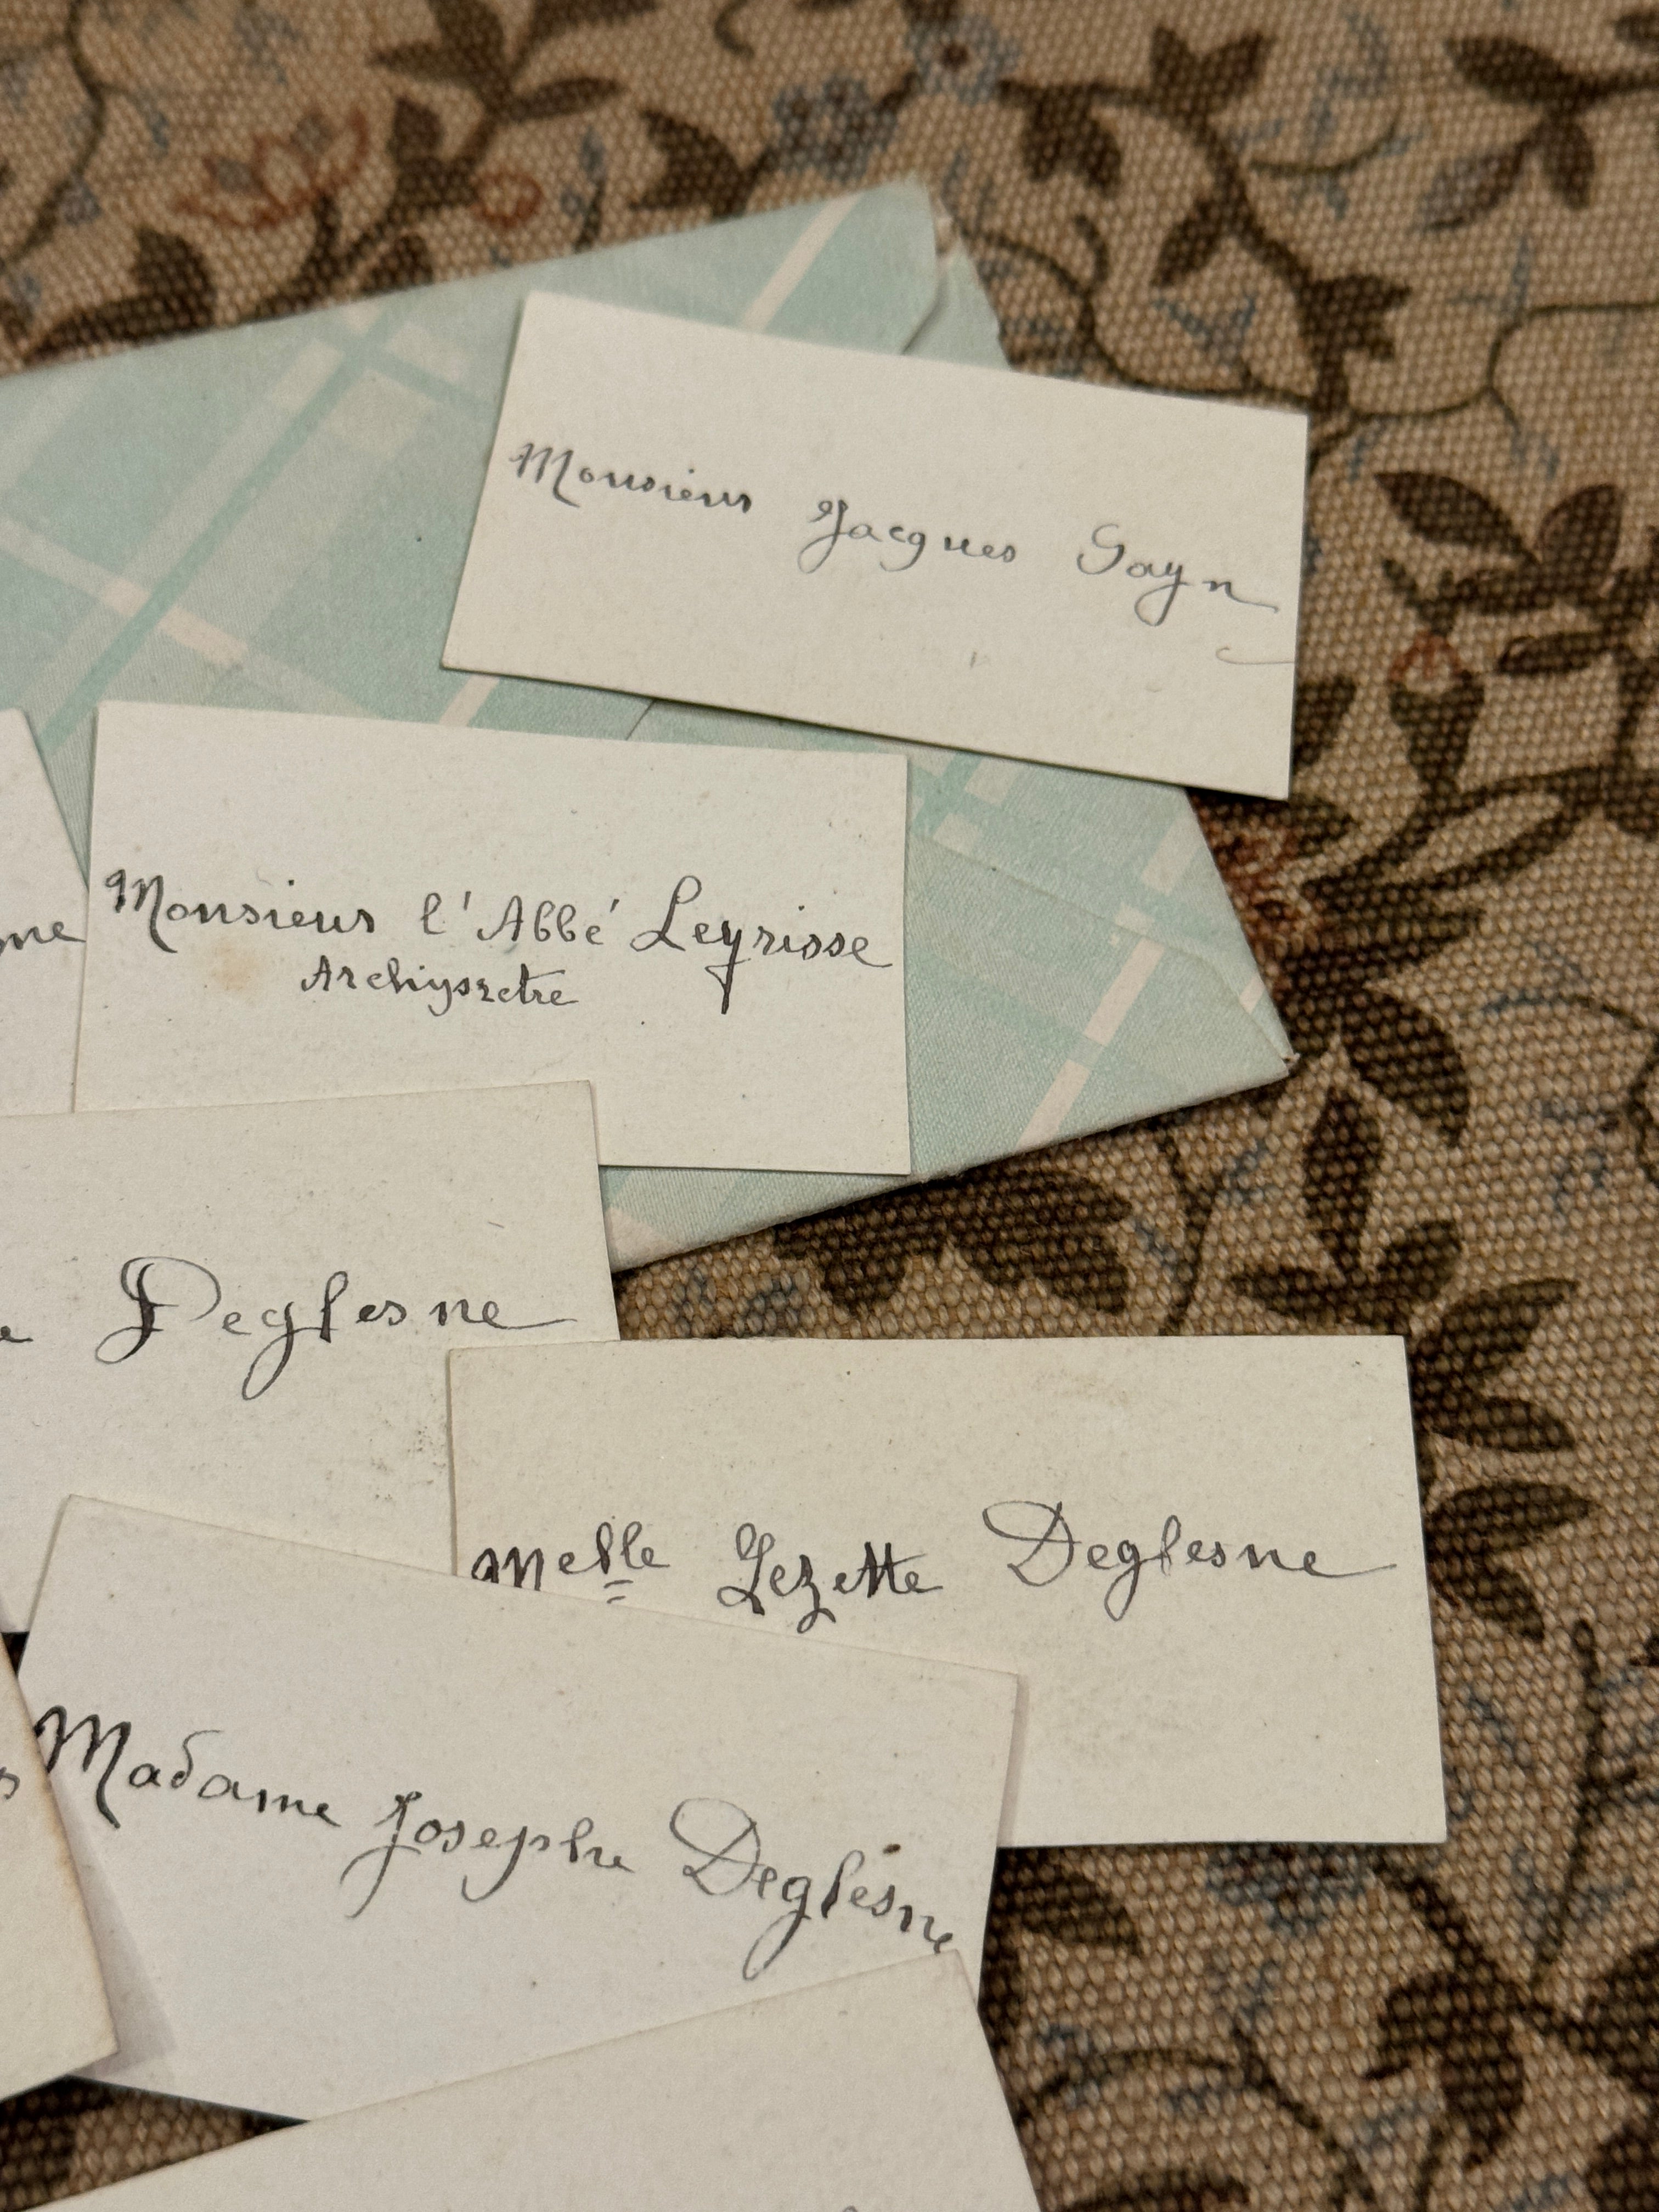 Monsieur Jacques Sayn
Monsieur l'Abbé Leyrisse
Archipretre
Deglesne
Melle Lezette Deglesne
Madame Josephe Deglesne